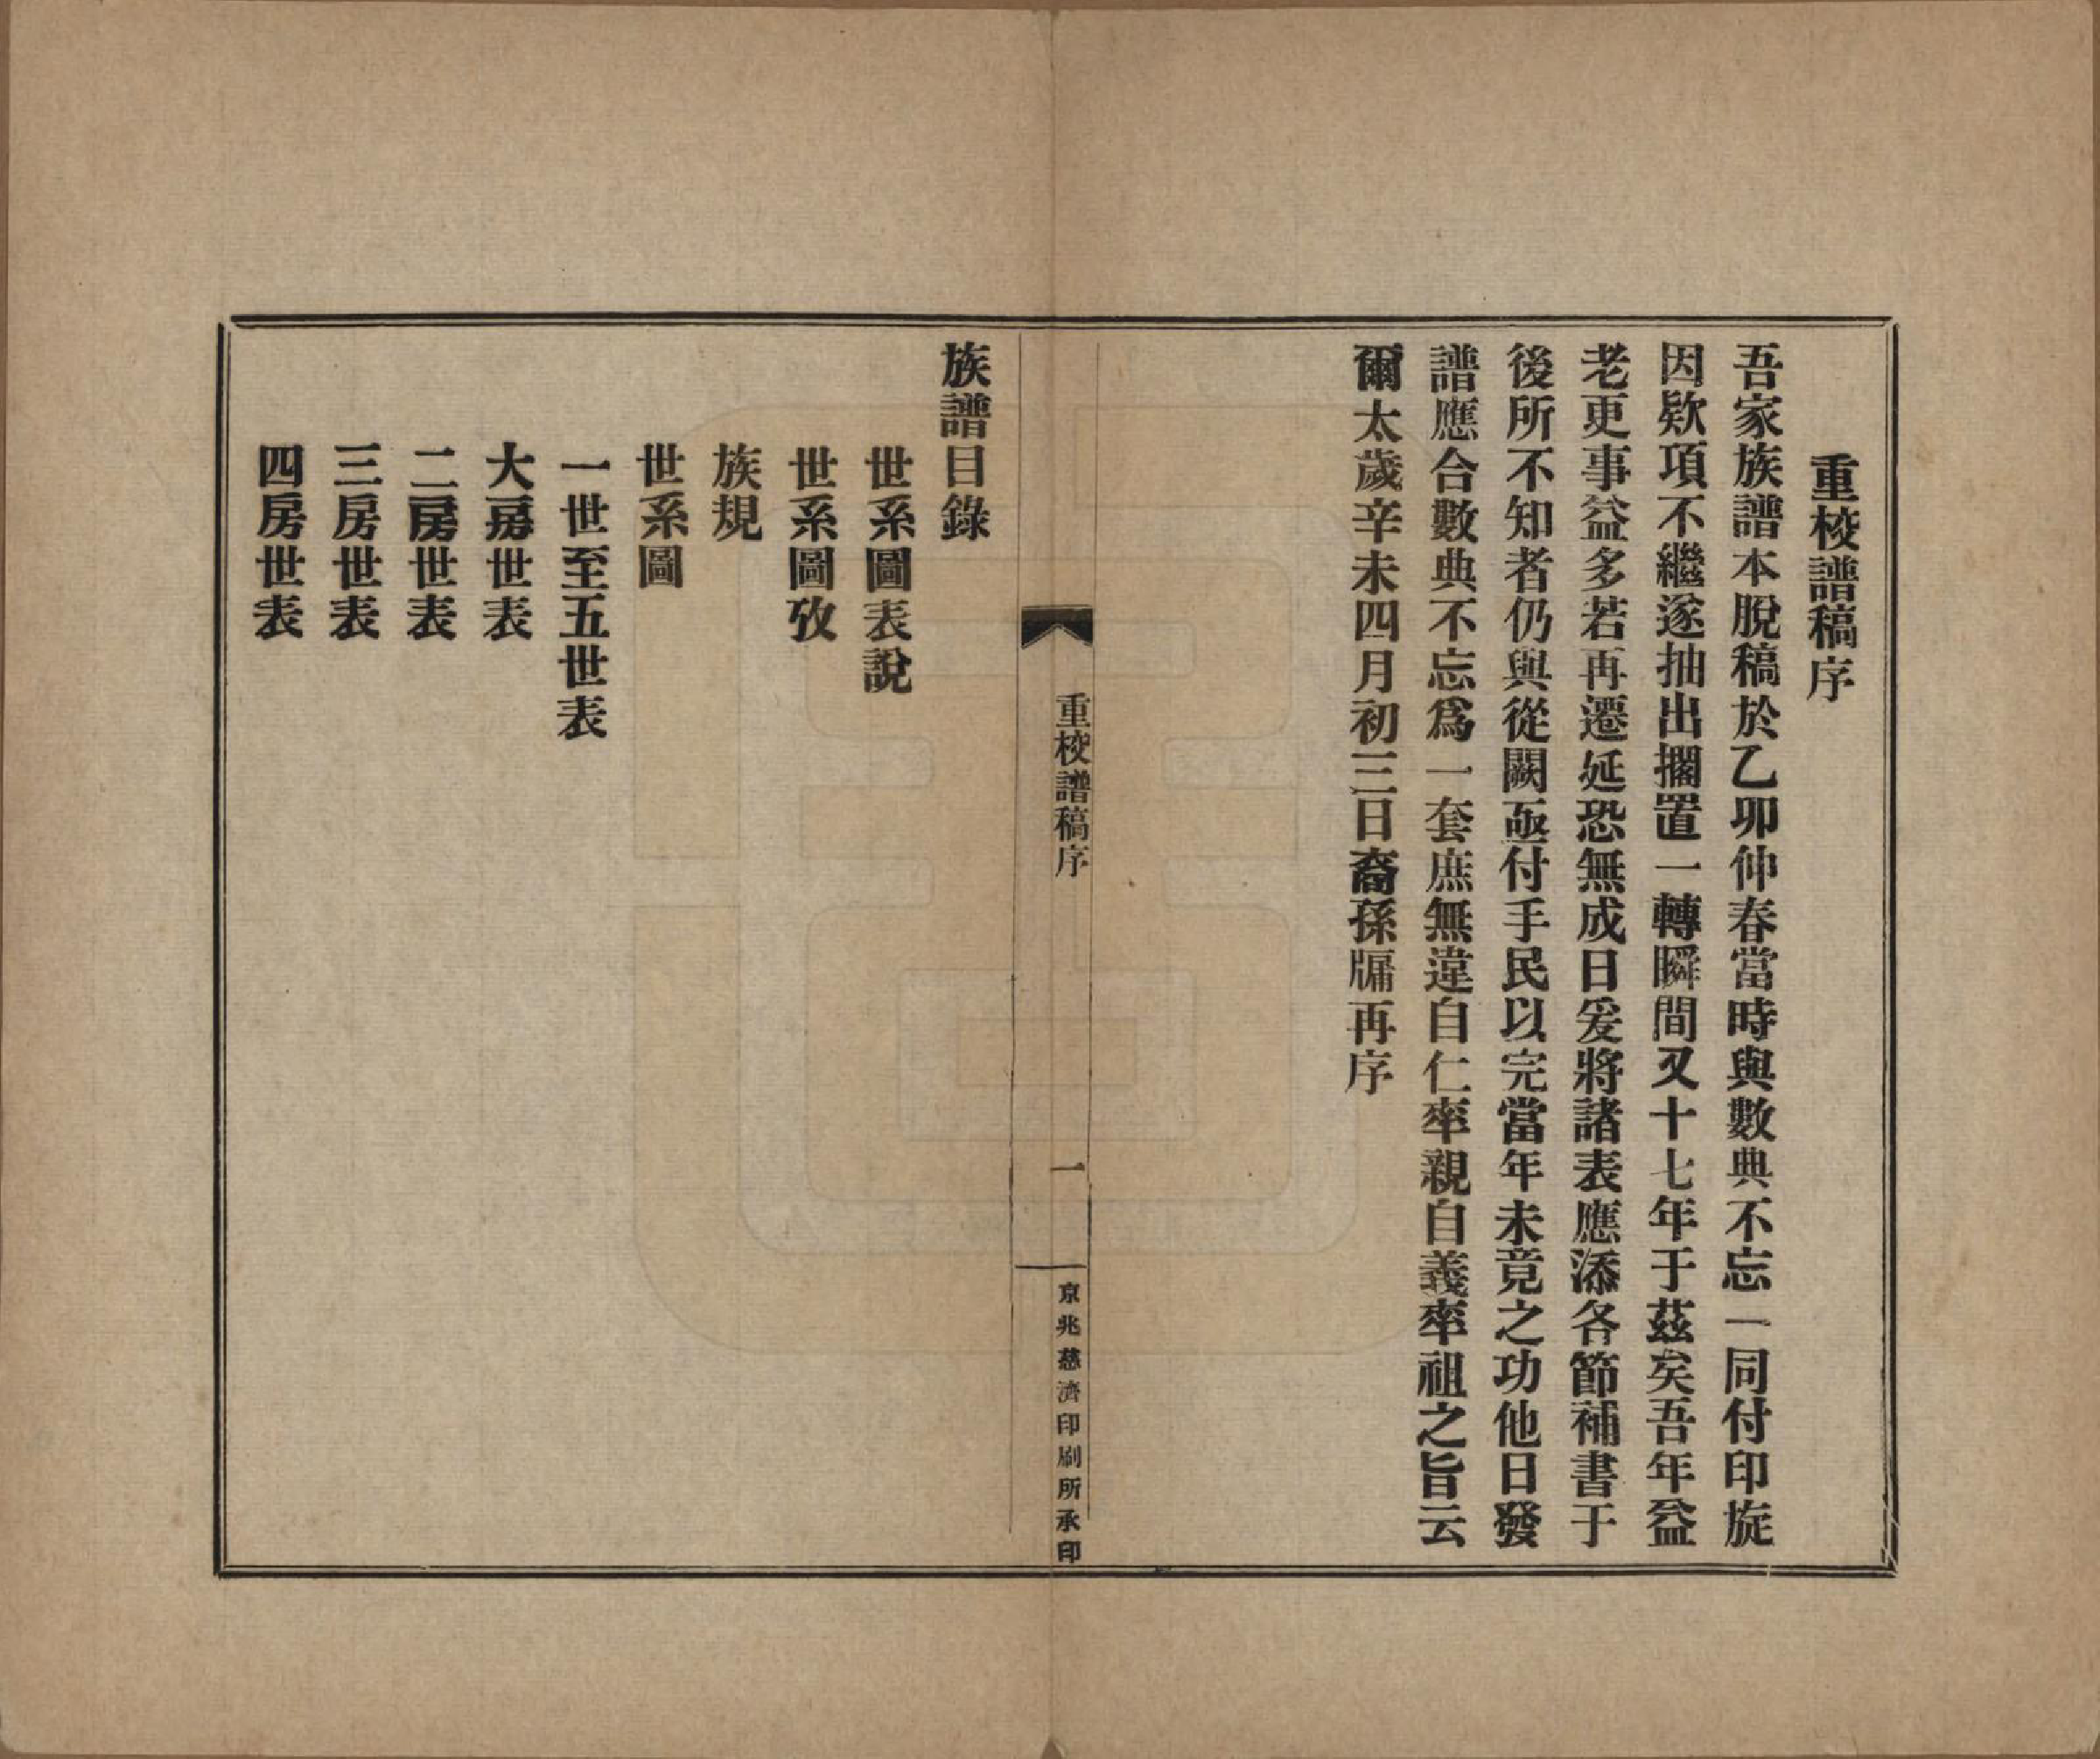 重校譜稿序
吾家族譜本脫稿於乙卯仲春當時與數典不忘一同付印旋
因欵項不繼遂抽出擱置一轉瞬間又十七年于茲矣吾年益
老更事益多若再遷延恐無成日爰將諸表應添各節補書于
後所不知者仍與從闕亟付手民以完當年未竟之功他日發
譜應合數典不忘爲一套庶無違自仁率親自義率祖之旨云
爾太歲辛未四月初三日裔孫牖再序
重校譜稿序
一
京兆慈濟印刷所承印
族譜目錄
世系圖表說
世系圖攷
族規
世系圖
一世至五世表
大房世表
二房世表
三房世表
四房世表